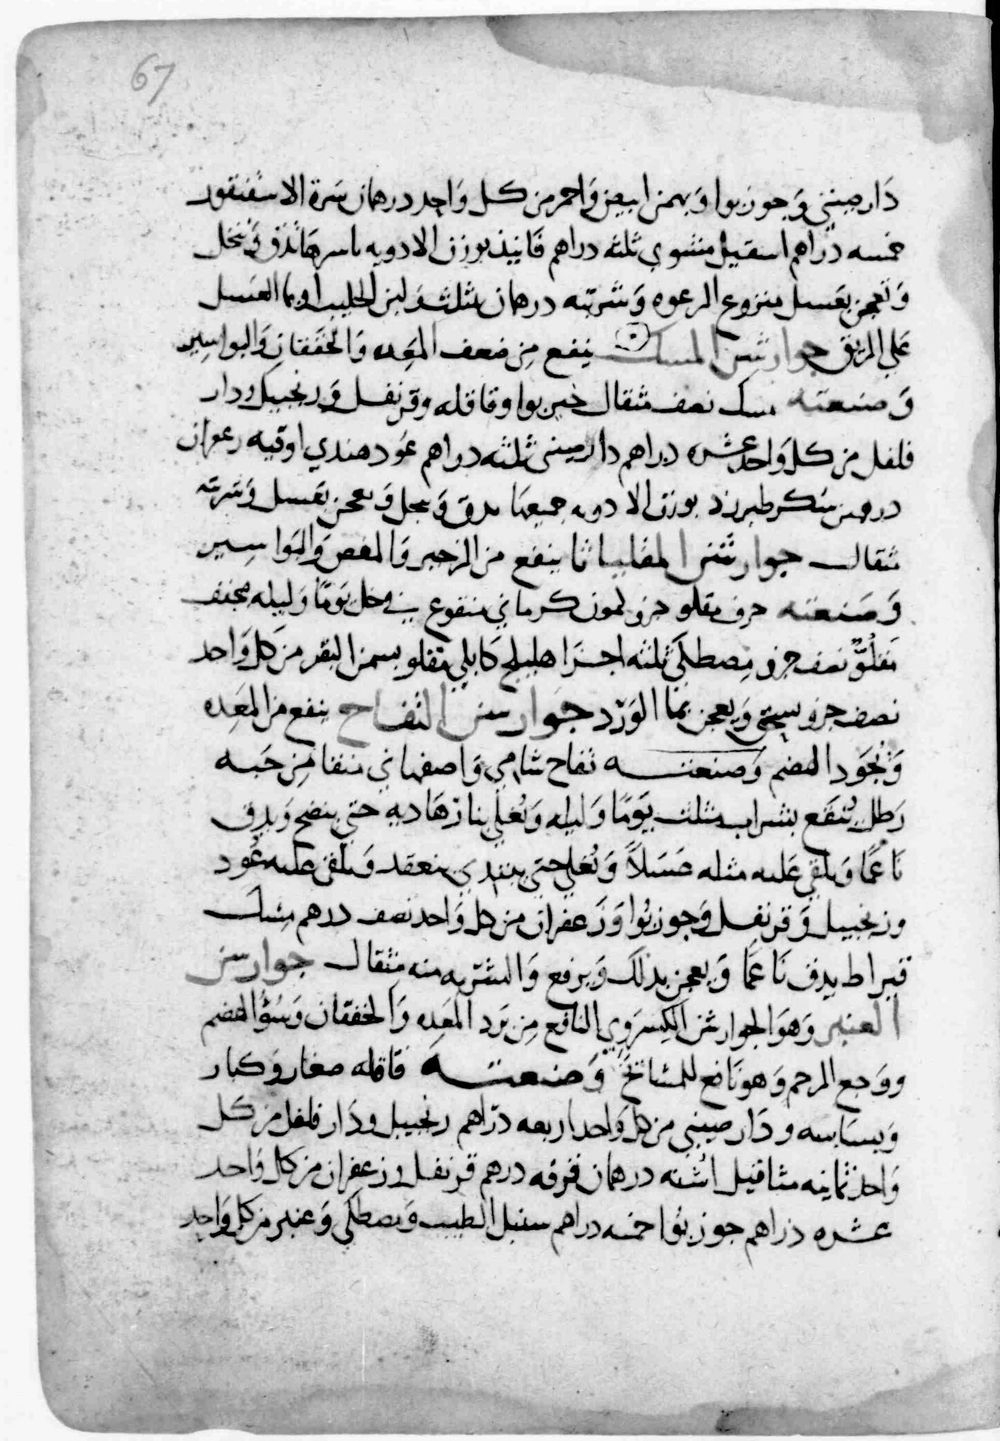 67
دَارصيني وَجوزبوا وَبهمن ابيض وَاحمر من كل وَاحد درهمان سَرة الاسْقنقور
خمسه دراهم اسقيل مشوي ثلثه دراهم فَانيذ بوزن الادويه باسرها تدَق وَتنخل
وَتعجن بعَسل منزوع الرغوه وَشربته درهمان بمثلث وَلبن الحليب او بما العسَل
عَلي الريق جوارشن المسك ينفع مِن ضعف المعِده وَالخفقان وَالبواسِير
وَصنعته مسك نصف مثقال خيربوا وقاقله وقرنفل وَزنجبيل ودار
فلفل من كل وَاحد عشره دراهم دارصيني ثلثه دراهم عَود هندي اوقيه زعفران
درهمين سكر طبرزد بوزن الادويه جميعها يدق وَينخل وَيعجن بعَسل وَشربته
مثقال جوارشن المقلياثا ينفع من الزحير وَالمغص وَالبَواسِير
وَصَنعته حرف مقلو جزو كمون كرماني منقوع في خل يَومًا وَليله مجفف
مَقلوّ نصف جزو مصطكَي ثلثه اجزَا هليلج كَابلي مقلو بسمن البقر من كل وَاحد
نصف جزو يسحَق وَيعجن بمَا الوَرد جوارسن التفاح ينفع من المعِده
وَيُجوّد الهضم وَصنعته تفاح شامي وَاصفهاني منقا مِن حَبه
رَطل يُنقع بشراب مثلث يَومًا وَليله وَيُغلي بنار هَاديه حتي ينضج وَيدق
نَاعمًا وَيلقي عَليه مثله عَسَلاً وَيُغلي حتي يبتدي ينعقد وَيلقي عليه عُود
وزنجبيل وَقرنفل وَجوزبُوا وَزعفران من كل وَاحد نصف درهم مِسك
قيراط يدق نَاعمًا وَيعجن بذلك وَيرفع وَالشربه منه مثقال جوارسن
العنبر وَهوَ الجوارشن الكِسرَوي النافع مِن بَرد المعَده وَالخفقان وَسُوُ الهضم
ووَجع الرحم وَهو نَافع للمشايخ وَصنعته قاقله صغار وَكبار
وَبسبَاسه ودَارصيني من كل وَاحد اربعه دَراهم زنجبيل ودَارفلفل من كل
وَاحد ثمانيه مثاقيل اشنه درهمان قرفه درهم قرنفل وزعفران من كل وَاحد
عشره دراهم جوزبُوا خمسه دراهم سنبل الطيب وَمصطكي وَعنبر من كل وَاحد